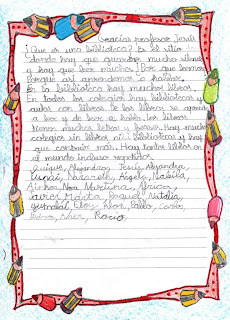 Gracias profesor Jesús
¿Que es una biblioteca? Es el sitio
donde hay que guardar mucho silencio
y hay que leer mucho. ¿Por que leemos?
Porque así aprendemos a hablar.
En la biblioteca hay muchos libros.
En todos los colegios hay bibliotecas y
aulas con libros. Si los libros se
a leer y de leer a hablar, los libros
tienen muchas letras y hojas. Hay muchos
colegios sin libros, ni bibliotecas y hay
que construir más. Hay tantos libros en
el mundo incluso repetidos.
Alejandro, Jesús, Alejandra,
Nazareth, Ángela, Nabila,
Ainhoa, Noa, Martina, África,
Marta, Raquel, Natalia,
Eloy, Pablo, Carla
Rocío